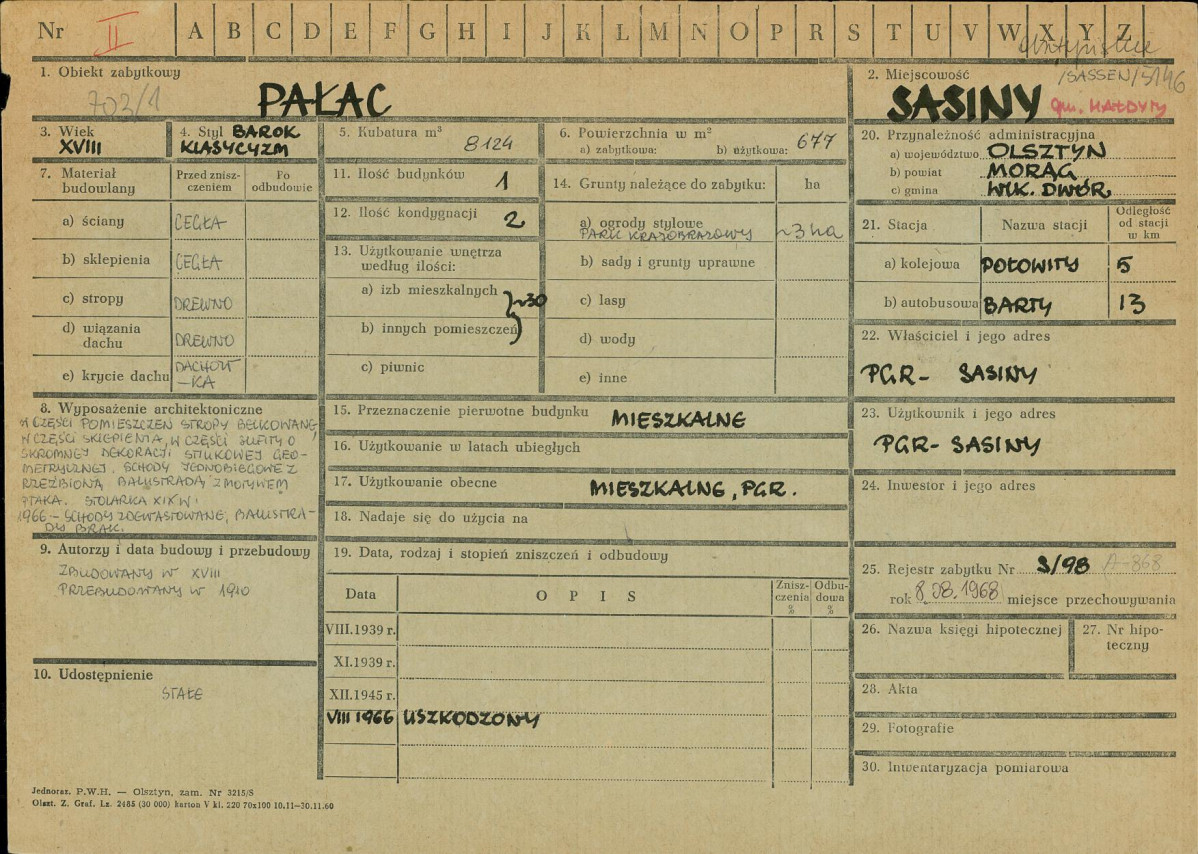 Nr II A B C D E F G H I J K L M N O P R S T U V W X Y Z
1. Obiekt zabytkowy
703/1
PAŁAC
2. Miejscowość
/SASSEN/5146
SASINY gm. MAŁDYTY
3. Wiek
XVIII
4. Styl BAROK
KLASYCYZM
5. Kubatura m³
8124
6. Powierzchnia w m²
a) zabytkowa: b) użytkowa: 677
7. Materiał budowlany
Przed zniszczeniem
Po odbudowie
a) ściany CEGŁA
b) sklepienia CEGŁA
c) stropy DREWNO
d) wiązania dachu DREWNO
e) krycie dachu DACHÓW-KA
8. Wyposażenie architektoniczne
W CZĘŚCI POMIESZCZEŃ STROPY BELKOWANE,
W CZĘŚCI SKLEPIENIA, W CZĘŚCI SUFITY O
SKROMNEJ DEKORACJI STIUKOWEJ GEO-
METRYCZNEJ. SCHODY JEDNOBIEGOWE Z
RZEŹBIONĄ BALUSTRADĄ Z MOTYWEM
PTAKA. STOLARKA XIX W.
1966 – SCHODY ZDEWASTOWANE, BALUSTRA-
DY BRAK.
9. Autorzy i data budowy i przebudowy
ZBUDOWANY W XVIII
PRZEBUDOWANY W 1910
10. Udostępnienie
STAŁE
11. Ilość budynków 1
12. Ilość kondygnacji 2
13. Użytkowanie wnętrza
według ilości:
a) izb mieszkalnych
~30
b) innych pomieszczeń
c) piwnic
14. Grunty należące do zabytku: ha
a) ogrody stylowe
PARK KRAJOBRAZOWY ~3 ha
b) sady i grunty uprawne
c) lasy
d) wody
e) inne
15. Przeznaczenie pierwotne budynku MIESZKALNE
16. Użytkowanie w latach ubiegłych
17. Użytkowanie obecne MIESZKALNE, PGR.
18. Nadaje się do użycia na
19. Data, rodzaj i stopień zniszczeń i odbudowy
Data O P I S Zniszczenia % Odbudowa %
VIII.1939 r.
XI.1939 r.
XII.1945 r.
VIII 1966 USZKODZONY
20. Przynależność administracyjna
a) województwo OLSZTYN
b) powiat MORĄG
c) gmina WLK. DWÓR
21. Stacja Nazwa stacji Odległość od stacji w km
a) kolejowa POŁOWITY 5
b) autobusowa BARTY 13
22. Właściciel i jego adres
PGR- SASINY
23. Użytkownik i jego adres
PGR- SASINY
24. Inwestor i jego adres
25. Rejestr zabytku Nr S/98 A-868
rok 8.08.1968 miejsce przechowywania
26. Nazwa księgi hipotecznej
27. Nr hipo-
teczny
28. Akta
29. Fotografie
30. Inwentaryzacja pomiarowa
Jednoraz. P.W.H. — Olsztyn, zam. Nr 3215/S
Olszt. Z. Graf. Lz. 2485 (30 000) karton V kl. 220 70x100 10.11—30.11.60